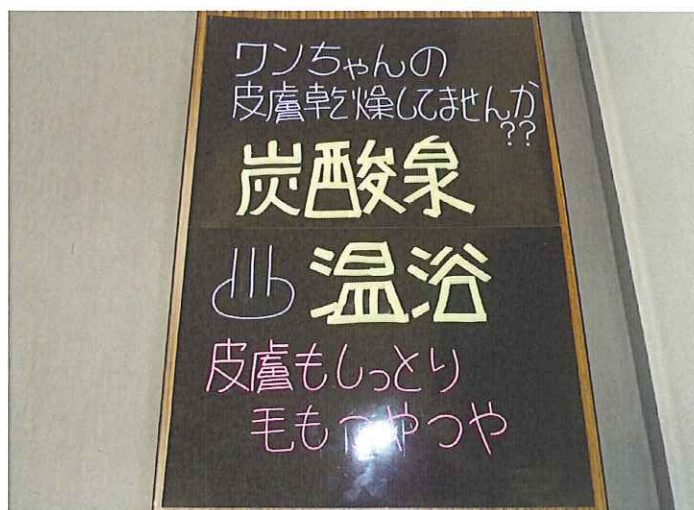 ワンちゃんの
皮膚乾燥してませんか
??
炭酸泉
♨温浴
皮膚もしっとり
毛もつやつや